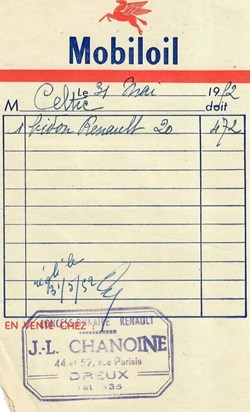 Mobiloil
Le 31 Mai 1952
M Celtic doit
1 bidon Renault 20 472
réglé le
31/5/52
EN VENTE CHEZ :
CONCESSIONNAIRE RENAULT
J.-L. CHANOINE
44 et 57, rue Parisis
DREUX
Tél. 135